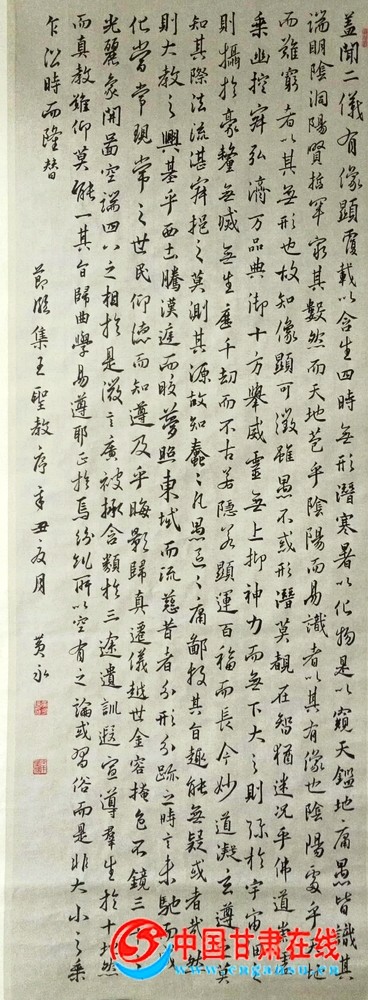 蓋聞二儀有像顯覆載以含生四時無形潛寒暑以化物是以窺天鑑地庸愚皆識其
端明陰洞陽賢哲罕窮其數然而天地苞乎陰陽而易識者以其有像也陰陽處乎天地
而難窮者以其無形也故知像顯可徵雖愚不惑形潛莫覩在智猶迷況乎佛道崇虛
乘幽控寂弘濟万品典御十方舉威靈無上抑神力而無下大之則彌於宇宙細之
則攝於豪釐無滅無生歷千劫而不古若隱若顯運百福而長今妙道凝玄遵之莫
知其際法流湛寂挹之莫測其源故知蠢々凡愚區々庸鄙投其旨趣能無疑或者哉然
則大教之興基乎西土騰漢庭而皎夢照東域而流慈昔者分形分跡之時言未馳而成
化當常現常之世民仰德而知遵及乎晦影歸真遷儀越世金容掩色不鏡三千之
光麗象開圖空端四八之相於是微言廣被拯含類於三途遺訓遐宣導群生於十地然
而真教難仰莫能一其旨歸曲學易遵耶正於焉紛糺所以空有之論或習俗而是非大小之乘
乍沿時而隆替
節臨集王聖教序辛丑夏月 黃永
中国甘肃在线
www.cngansu.cn